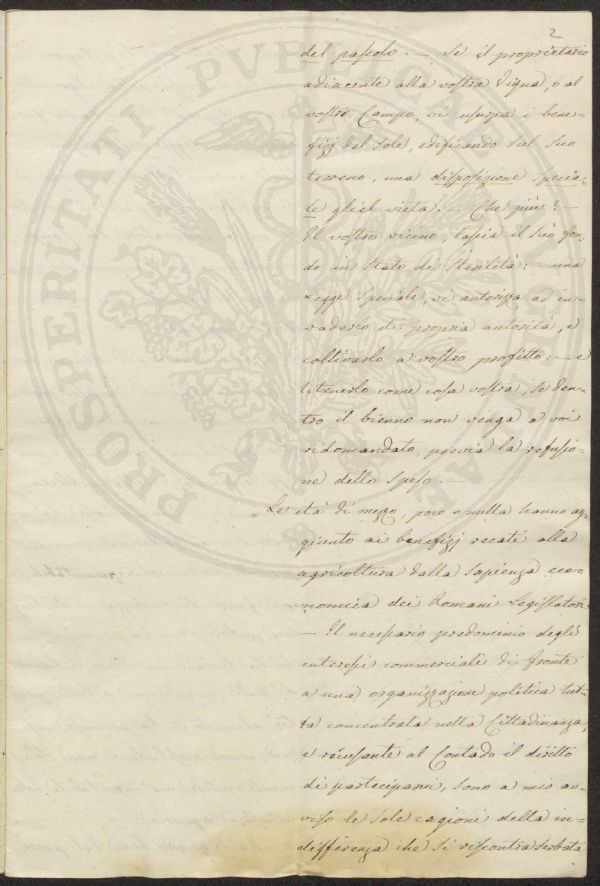 2
del pascolo. — Se il proprietario
adiacente alla vostra Vigna, o al
vostro Campo, vi usurpa i bene-
fizj del Sole, edificando sul suo
terreno, una disposizione specia-
le gliel vieta. — Che più? —
Il vostro vicino, lascia il suo fon-
do in stato di Sterilità: — una
Legge Speciale, vi autorizza ad in-
vaderlo di propria autorità, e
coltivarlo a vostro profitto: — e
ritenerlo come cosa vostra, se den-
tro il bienno non venga a voi
ridomandato, previa la refusio-
ne dello Speso. —
Le età di mezzo, poco o nulla hanno ag-
giunto ai benefizj recati alla
agricoltura dalla Sapienza eco-
nomica dei Romani Legislatori.
— Il necessario predominio degli
interessi commerciali di fronte
a una organizzazione politica tut-
ta concentrata nella Cittadinanza,
e recusante al Contado il diritto
di parteciparvi, sono a mio av-
viso le sole cagioni della in-
differenza che si riscontra serbata
PROSPERITATI PVBLICAE